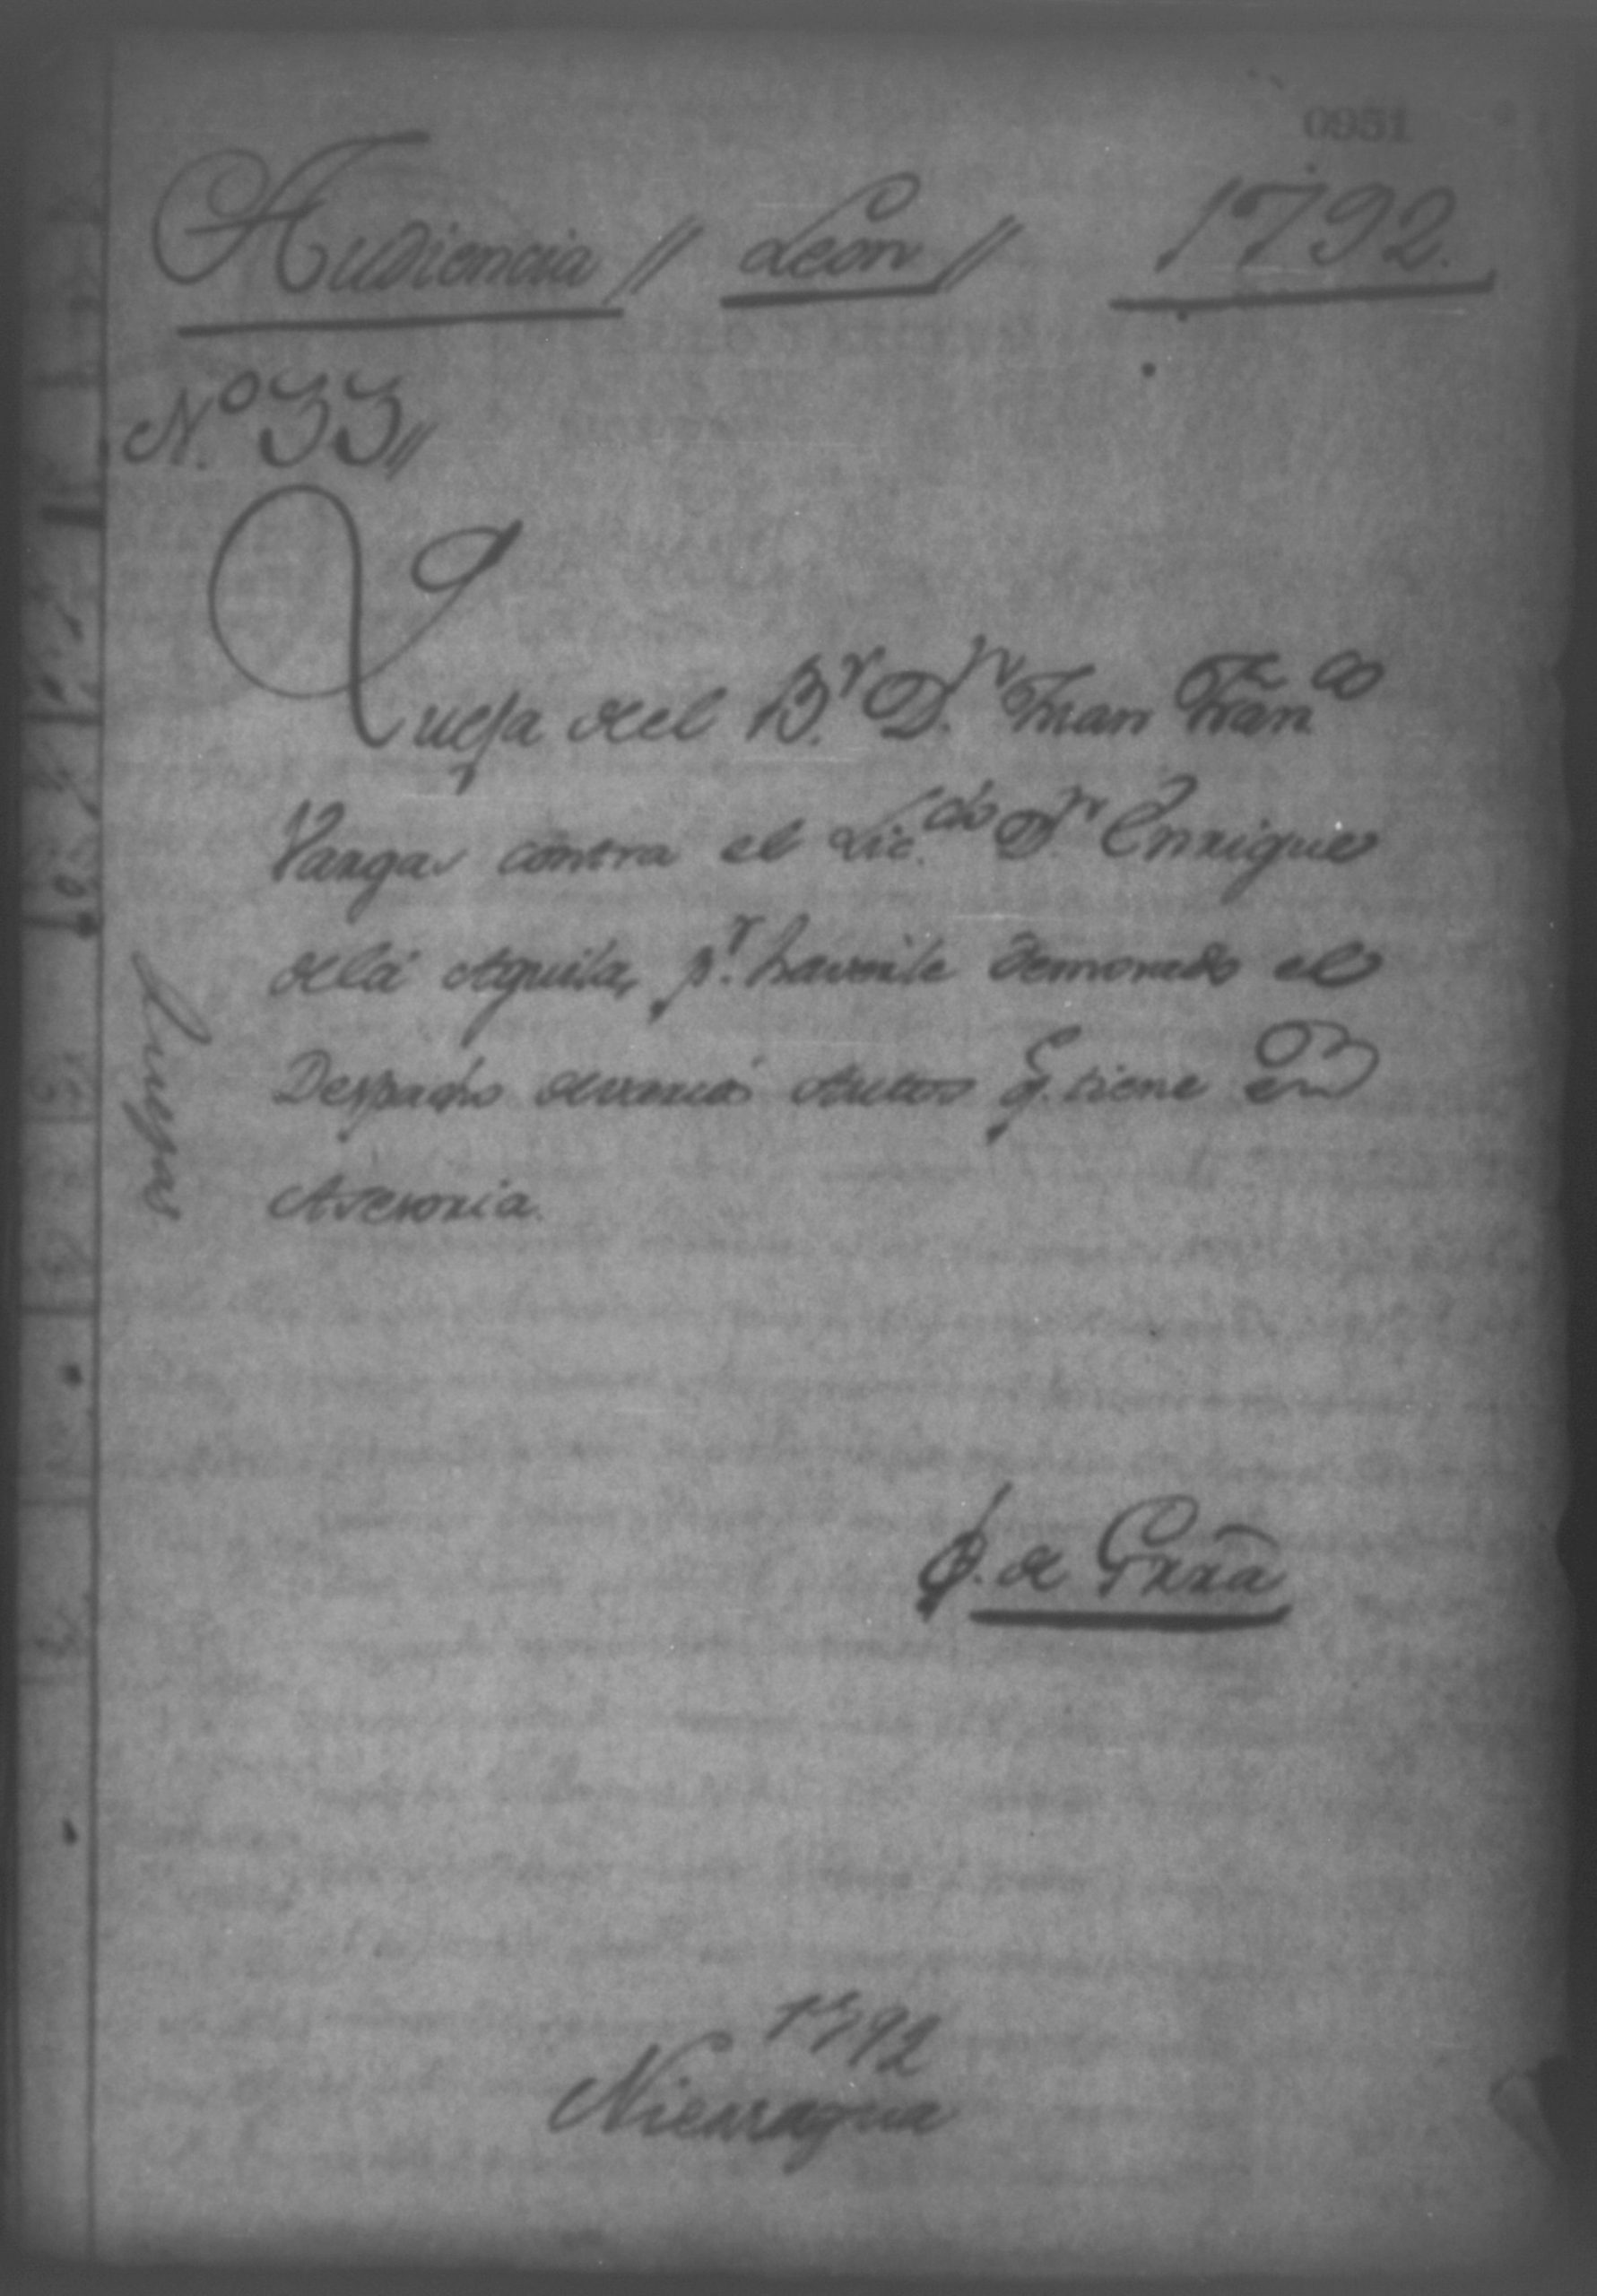 0951
Audiencia // Leon // 1792.
N.º 33 //
Quefa del B.r D.n Juan Fran.co
Vargas contra el Lic.do D.n Enrique
dela Aguila, p.r haverle demorado el
Despacho devarios Autos q. tiene en
Asesoria.
Quejas
E. de Grra
1792
Nicaragua